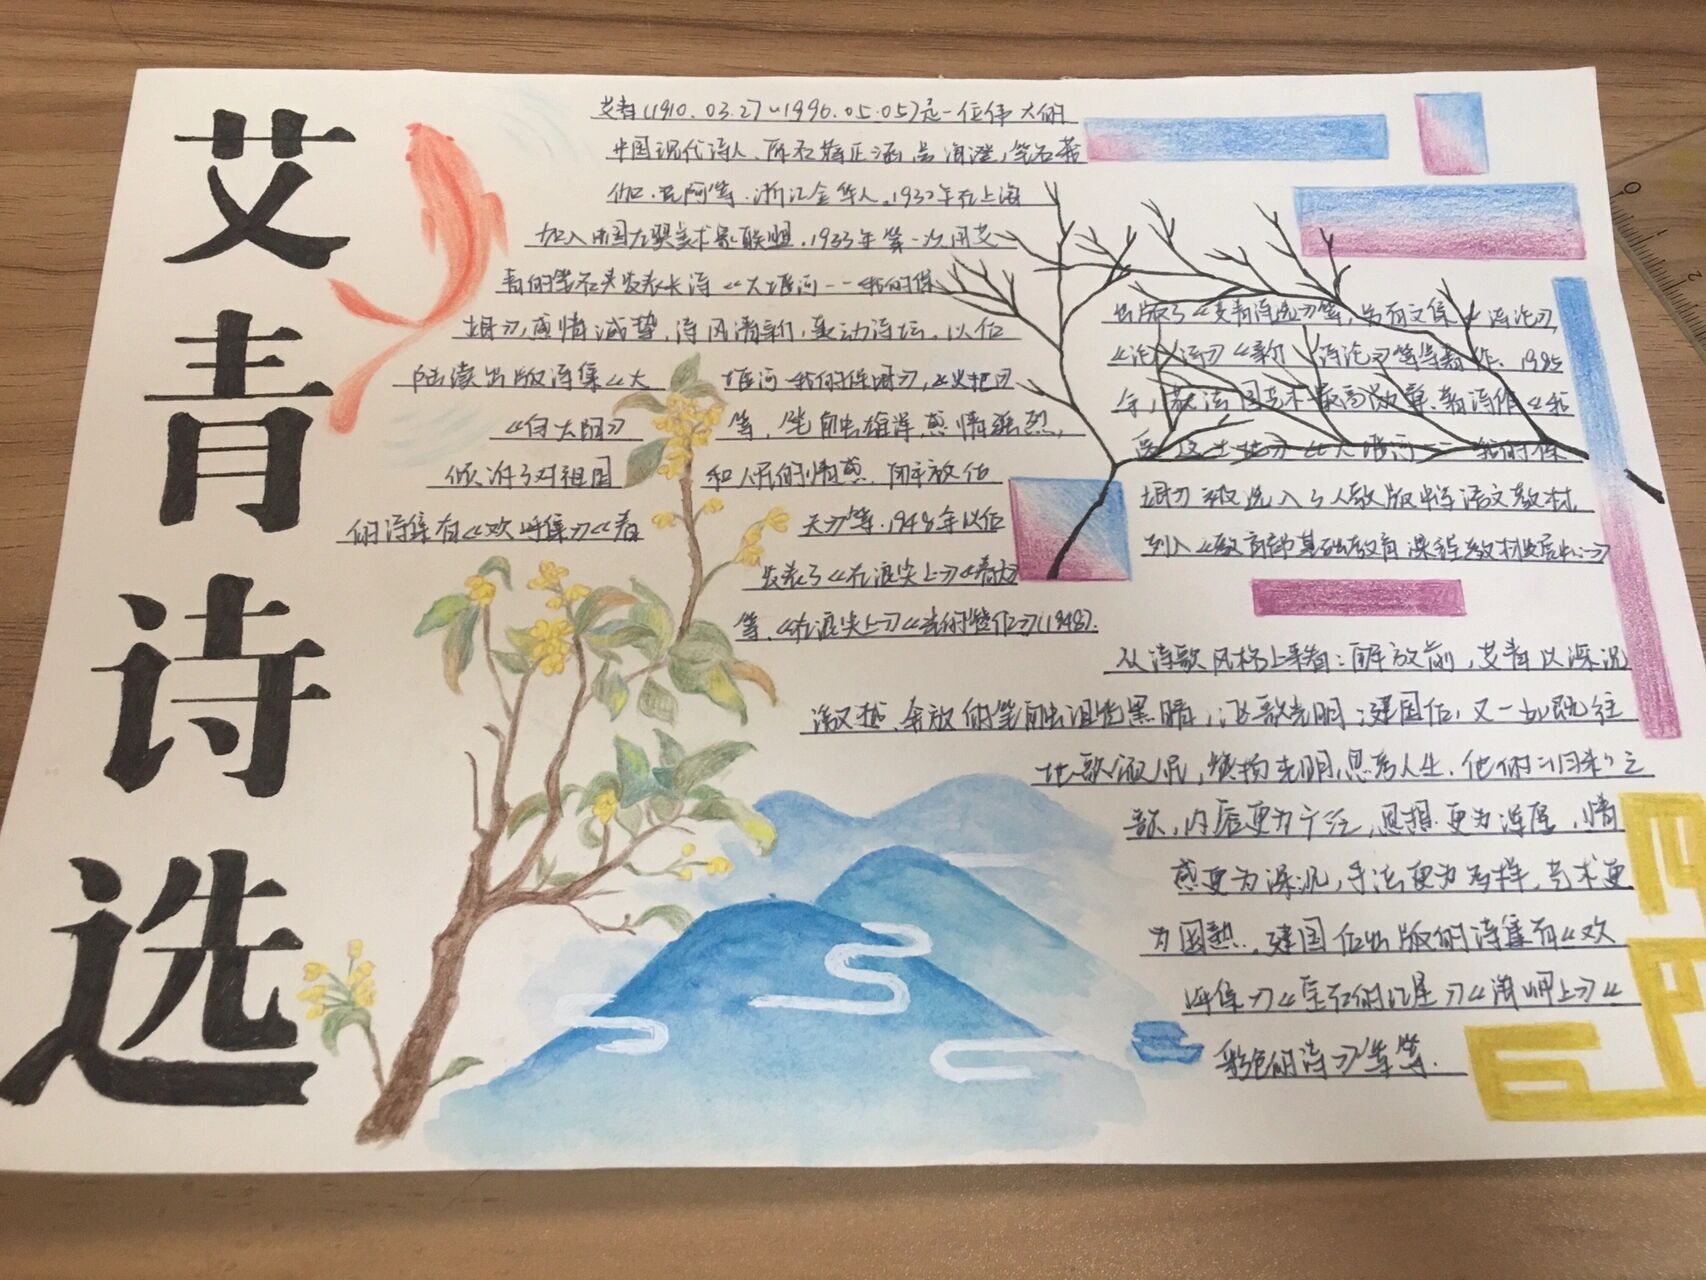 艾青诗选
艾青(1910.03.27~1996.05.05)是一位伟大的
中国现代诗人.原名蒋正涵,号海澄,笔名莪
伽.克阿等.浙江金华人.1932年在上海
加入中国左翼美术家联盟.1933年第一次用艾
青的笔名发表长诗《大堰河——我的保
姆》,感情诚挚,诗风清新,轰动诗坛.以后
陆续出版诗集《大堰河—我的保姆》,《火把》
《向太阳》等,笔触雄浑,感情强烈,
倾诉了对祖国和人民的情感.解放后
的诗集有《欢呼集》《春天》等.1948年以后
发表了《在浪尖上》
等.《在浪尖上》《光的赞歌》(1948).
出版了《艾青诗选》等,另有文集《诗论》,
《新诗论》等等著作.1985
年,获法国艺术最高勋章.《我
《大堰河——我的保
姆》被选入了人教版中学语文教材,
列入《教育部基础教育课程教材发展中心》
从诗歌风格上来看:解放前,艾青以深沉
激越、奔放的笔触诅咒黑暗,讴歌光明;建国后,又一如既往
地歌颂人民,赞扬光明,思考人生.他的"归来"之
歌,内容更为广泛,思想更为浑厚,情
感更为深沉,手法更为多样,艺术更
为圆熟.建国后出版的诗集有《欢
呼集》《宝石的红星》《海岬上》《
彩色的诗》等等.